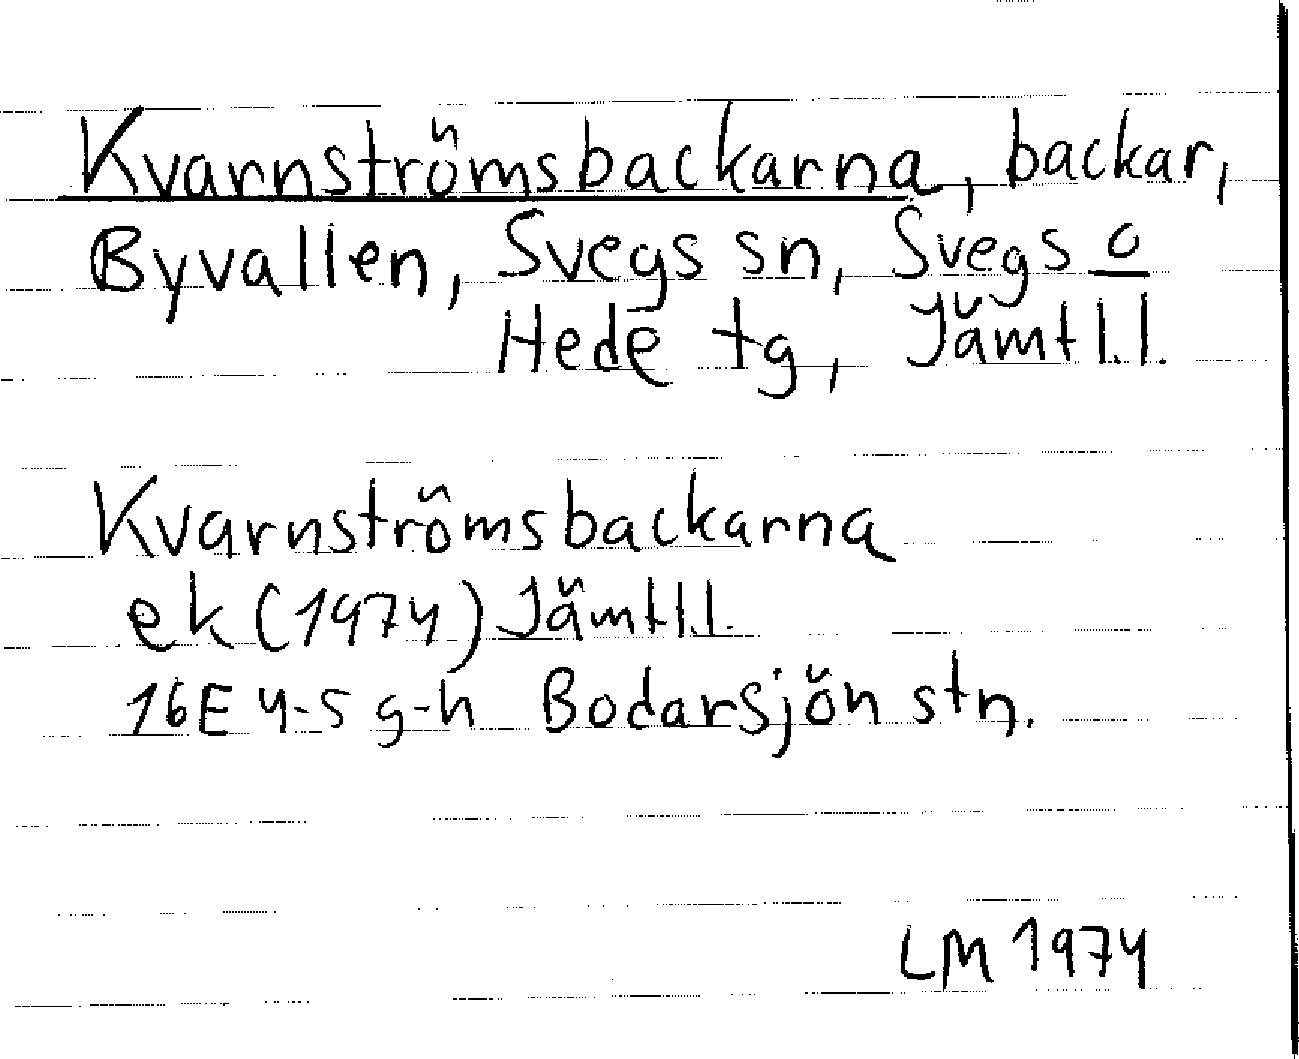 Kvarnströmsbackarna, backar,
Byvallen, Svegs sn, Svegs o
Hede tg, Jämtl.l.
Kvarnströmsbackarna
ek (1974) Jämtl.l.
16E 4-5 g-h Bodarsjön stn.
LM 1974